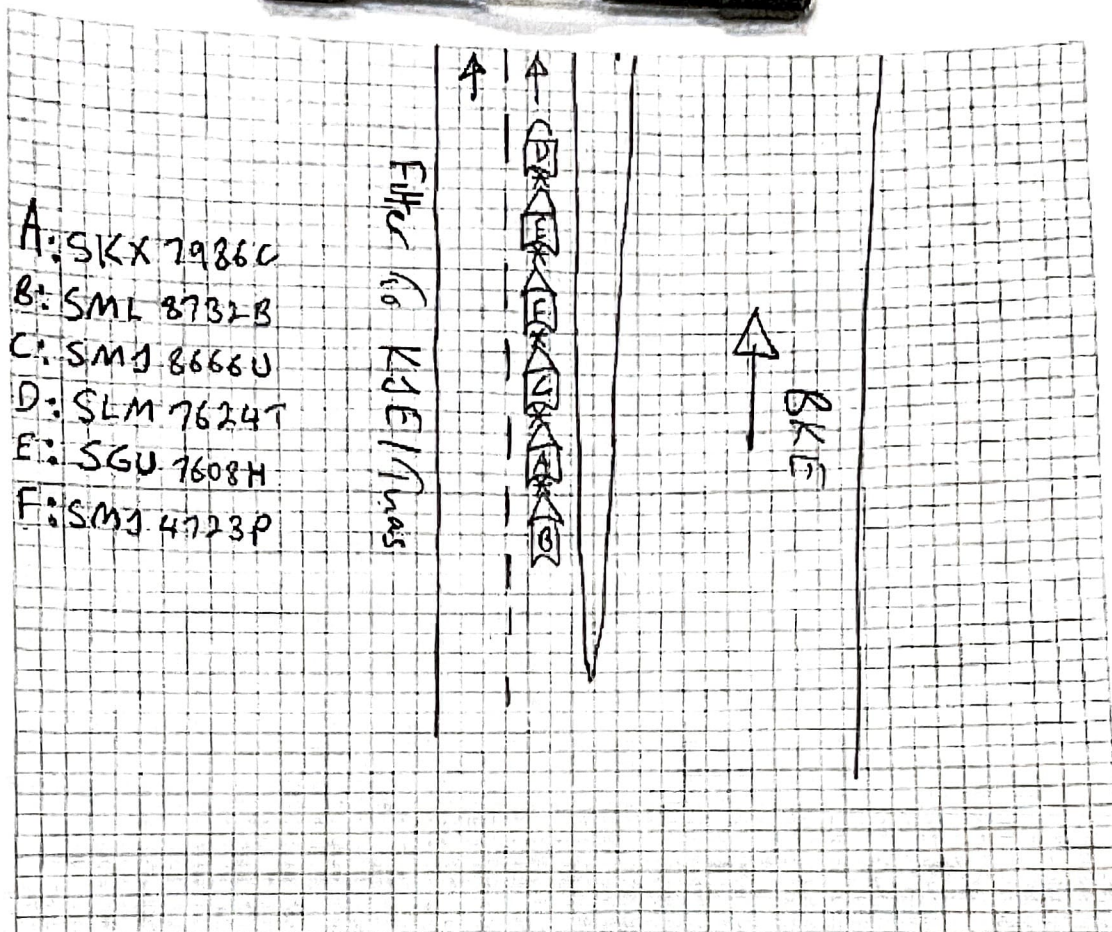 A: SKX 7986C
B: SML 8732B
C: SMJ 8666U
D: SLM 7624T
E: SGU 7608H
F: SMJ 4723P
Filter to KJE /
BKE
D
E
F
C
A
B